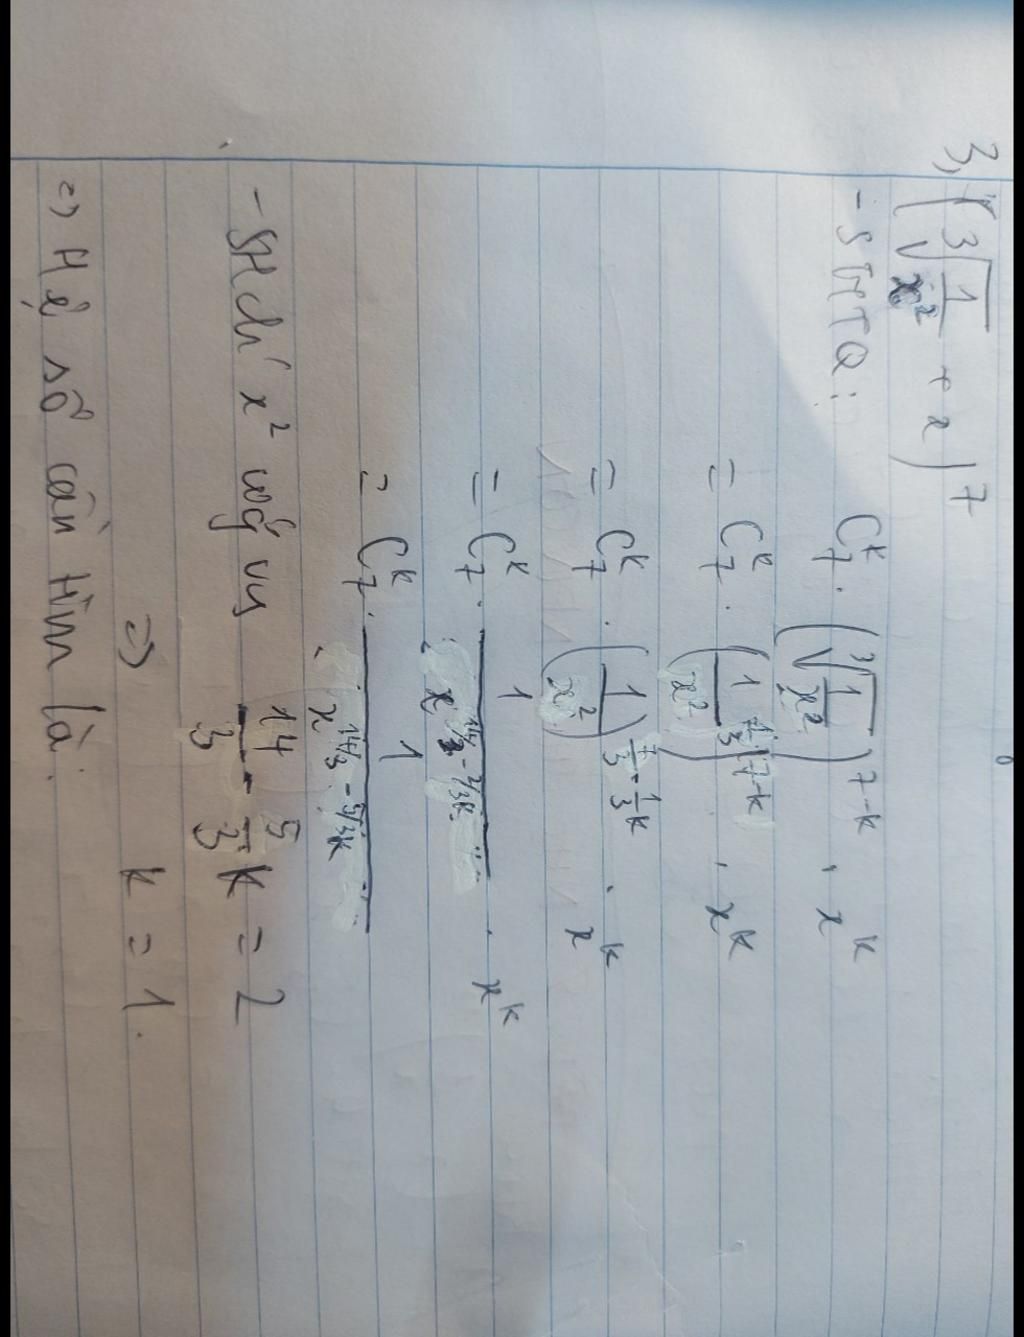 3, (∛(1/x²) + x)⁷
- SHTQ: C₇ᵏ . (∛(1/x²))⁷⁻ᵏ . xᵏ
= C₇ᵏ . (1/x²)^(1/3(7-k)) . xᵏ
= C₇ᵏ . (1/x²)^(7/3 - 1/3k) . xᵏ
= C₇ᵏ . 1/x^(14/3 - 2/3k) . xᵏ
= C₇ᵏ . 1/x^(14/3 - 5/3k)
- SH chí x² ứng vs 14/3 - 5/3 k = 2
=> k = 1.
=> Hệ số cần tìm là: